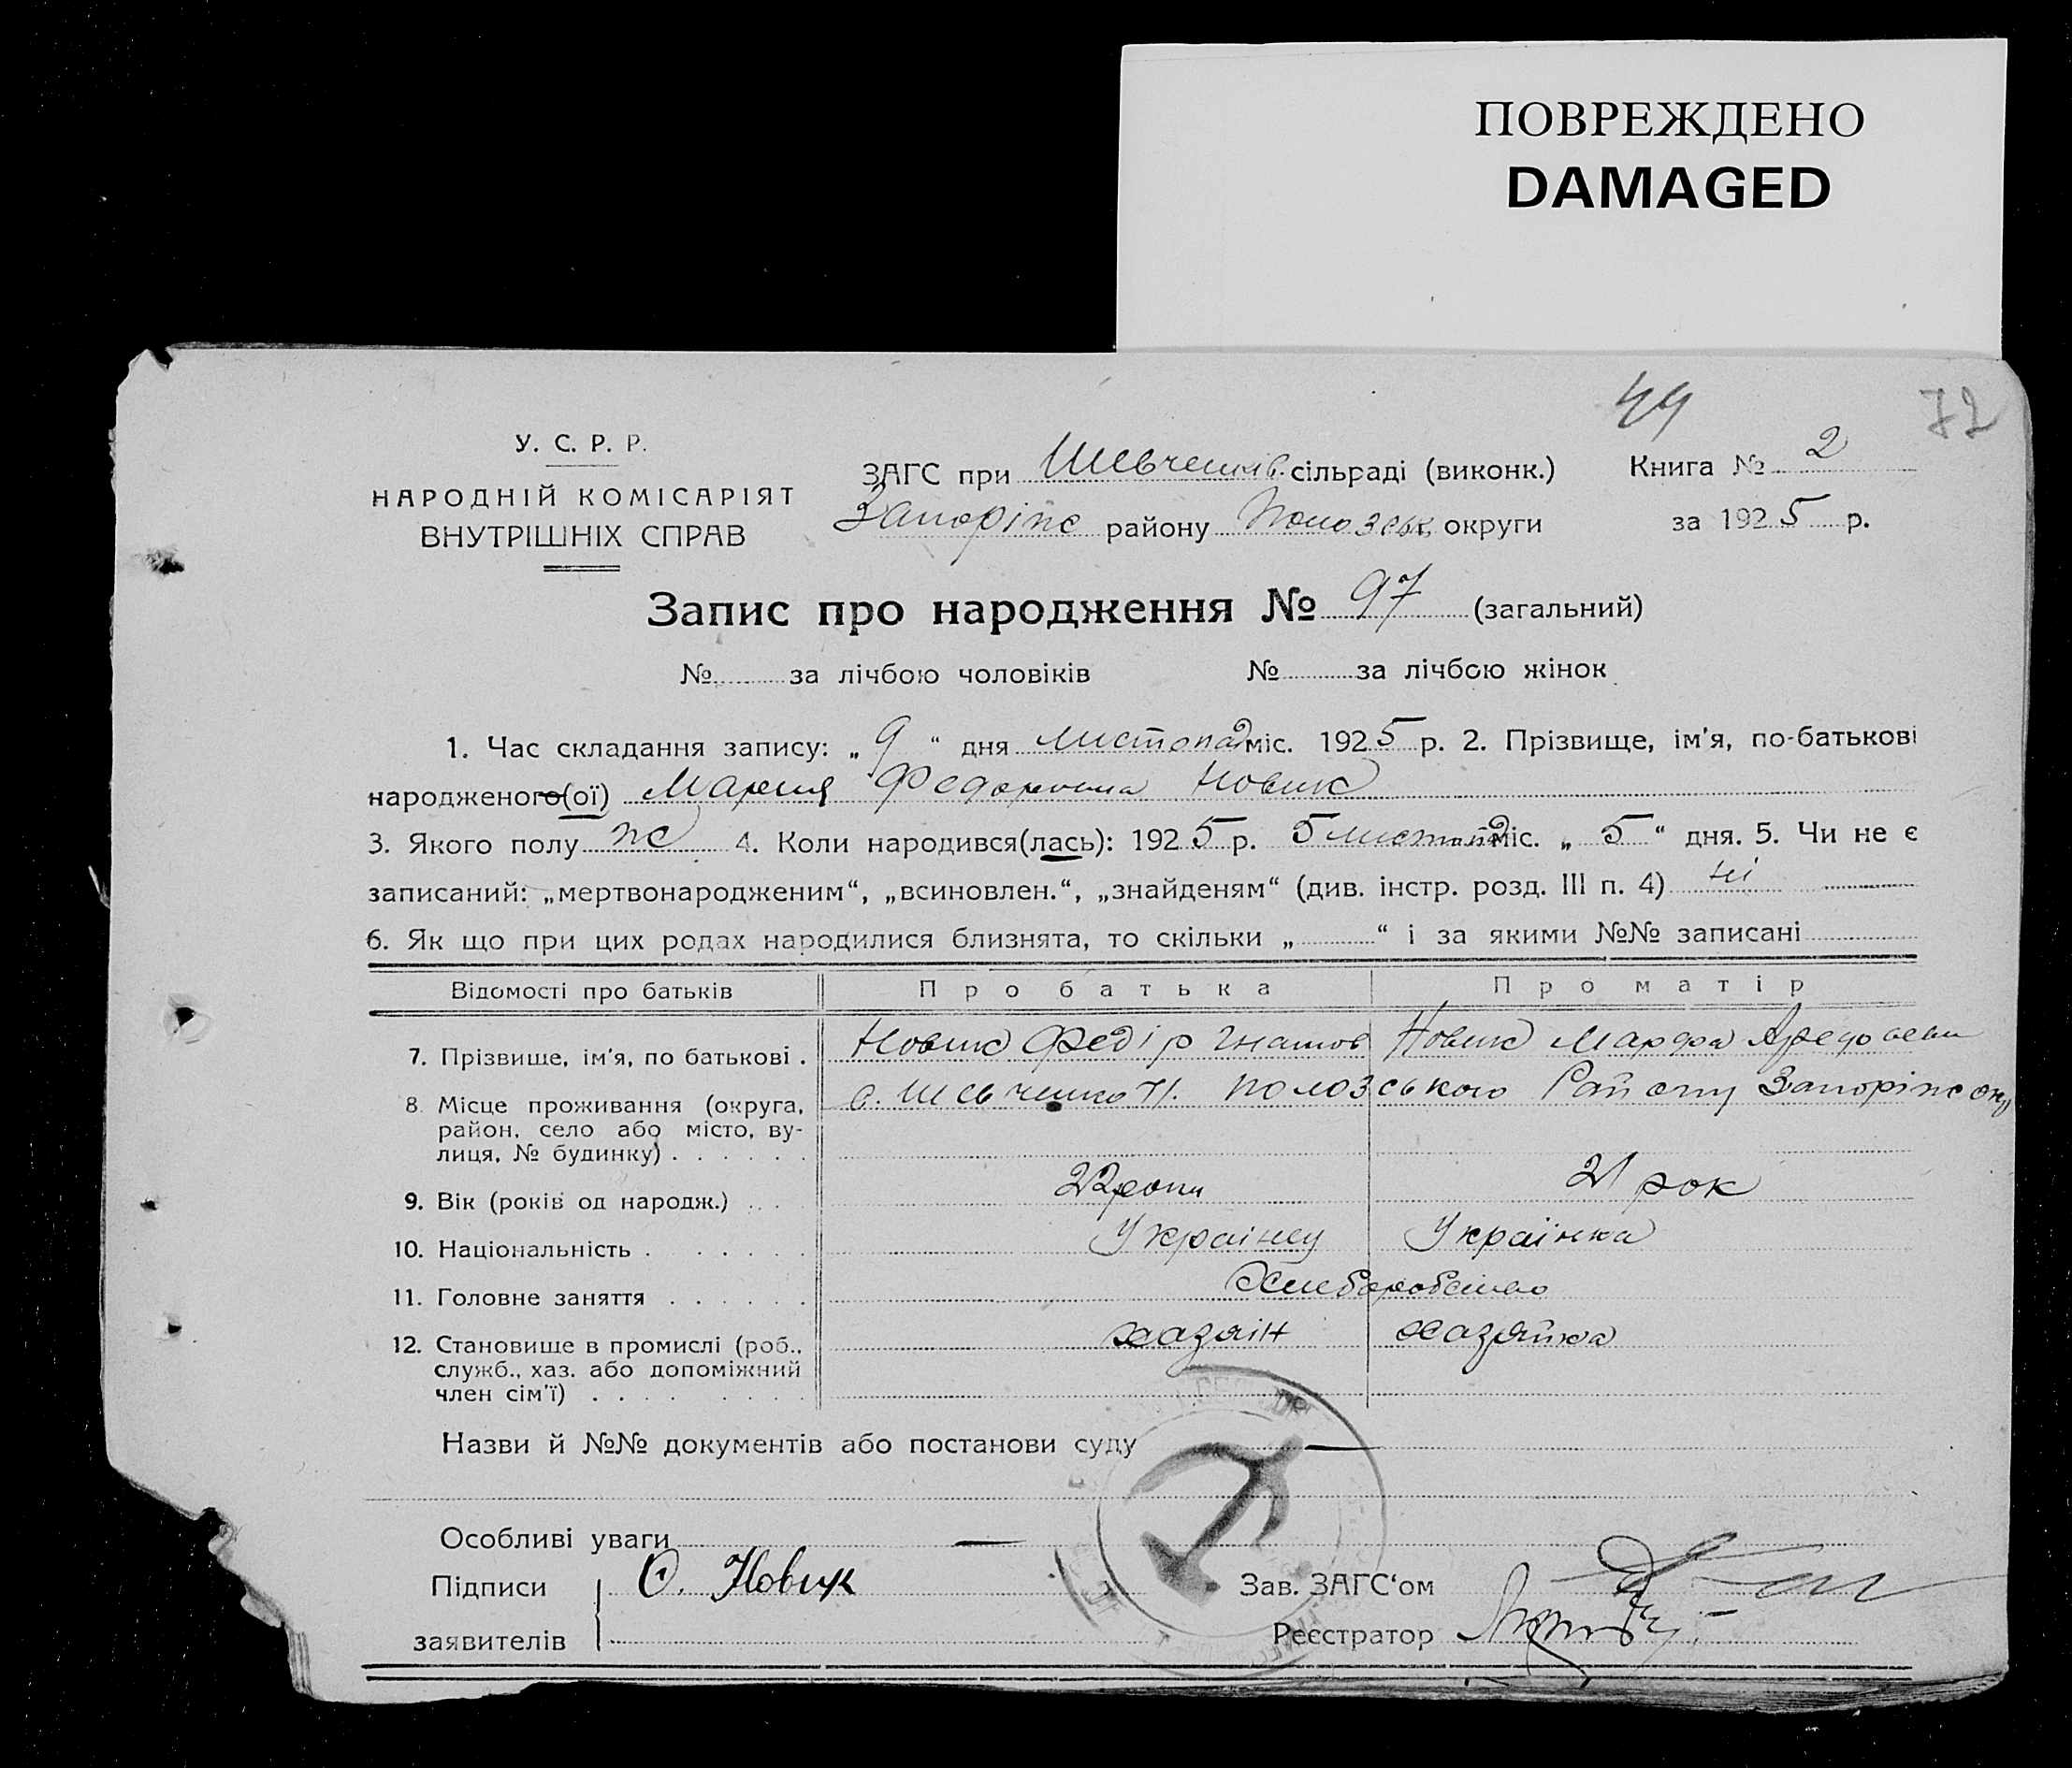 ПОВРЕЖДЕНО
DAMAGED
44 72
У. С. Р. Р.
НАРОДНІЙ КОМІСАРІЯТ
ВНУТРІШНІХ СПРАВ
ЗАГС при Шевченків. сільраді (виконк.) Книга № 2
Запоріж району Полозськ округи за 1925 р.
Запис про народження № 97 (загальний)
№ за лічбою чоловіків № за лічбою жінок
1. Час складання запису: „ 9 “ дня листопад міс. 1925 р. 2. Прізвище, ім'я, по-батькові
народженого(ої) Мария Федоровна Новик
3. Якого полу ж 4. Коли народився(лась): 1925 р. 5 листопад міс. „ 5 “ дня. 5. Чи не є
записаний: „мертвонародженим“, „всиновлен.“, „знайденям“ (див. інстр. розд. III п. 4) ні
6. Як що при цих родах народилися близнята, то скільки „ “ і за якими №№ записані
Відомості про батьків Про батька Про матір
7. Прізвище, ім'я, по батькові . Новик Федір Гнатов Новик Марфа
8. Місце проживання (округа, с. Шевченко Полозського Району Запоріж окр
район, село або місто, ву-
лиця, № будинку) . . . . . .
9. Вік (років од народж.) . . . 22 роки 21 рок
10. Національність . . . . . . Українец Українка
11. Головне заняття . . . . . . Хлиборобство
12. Становище в промислі (роб., хазяін хазяйка
служб., хаз. або допоміжний
член сім'ї) . . . . . . .
Назви й №№ документів або постанови суду —
Особливі уваги —
Підписи Ѳ. Новик Зав. ЗАГС'ом
заявителів Реєстратор